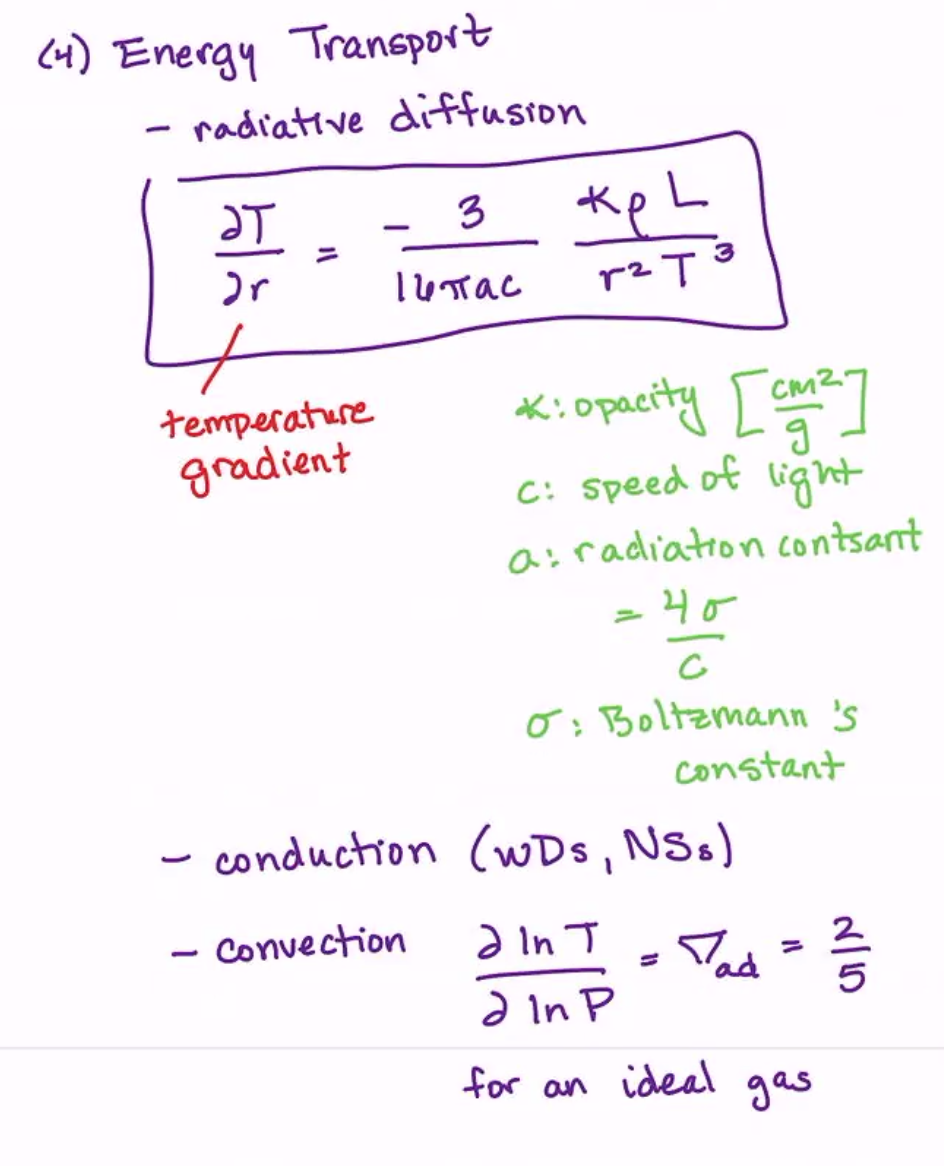 (4) Energy Transport
- radiative diffusion
∂T/∂r = - 3/16πac κρL/r²T³
temperature
gradient
κ: opacity [cm²/g]
c: speed of light
a: radiation contsant
= 4σ/c
σ: Boltzmann's
constant
- conduction (WDs, NSs)
- convection ∂ ln T/∂ ln P = ∇ad = 2/5
for an ideal gas